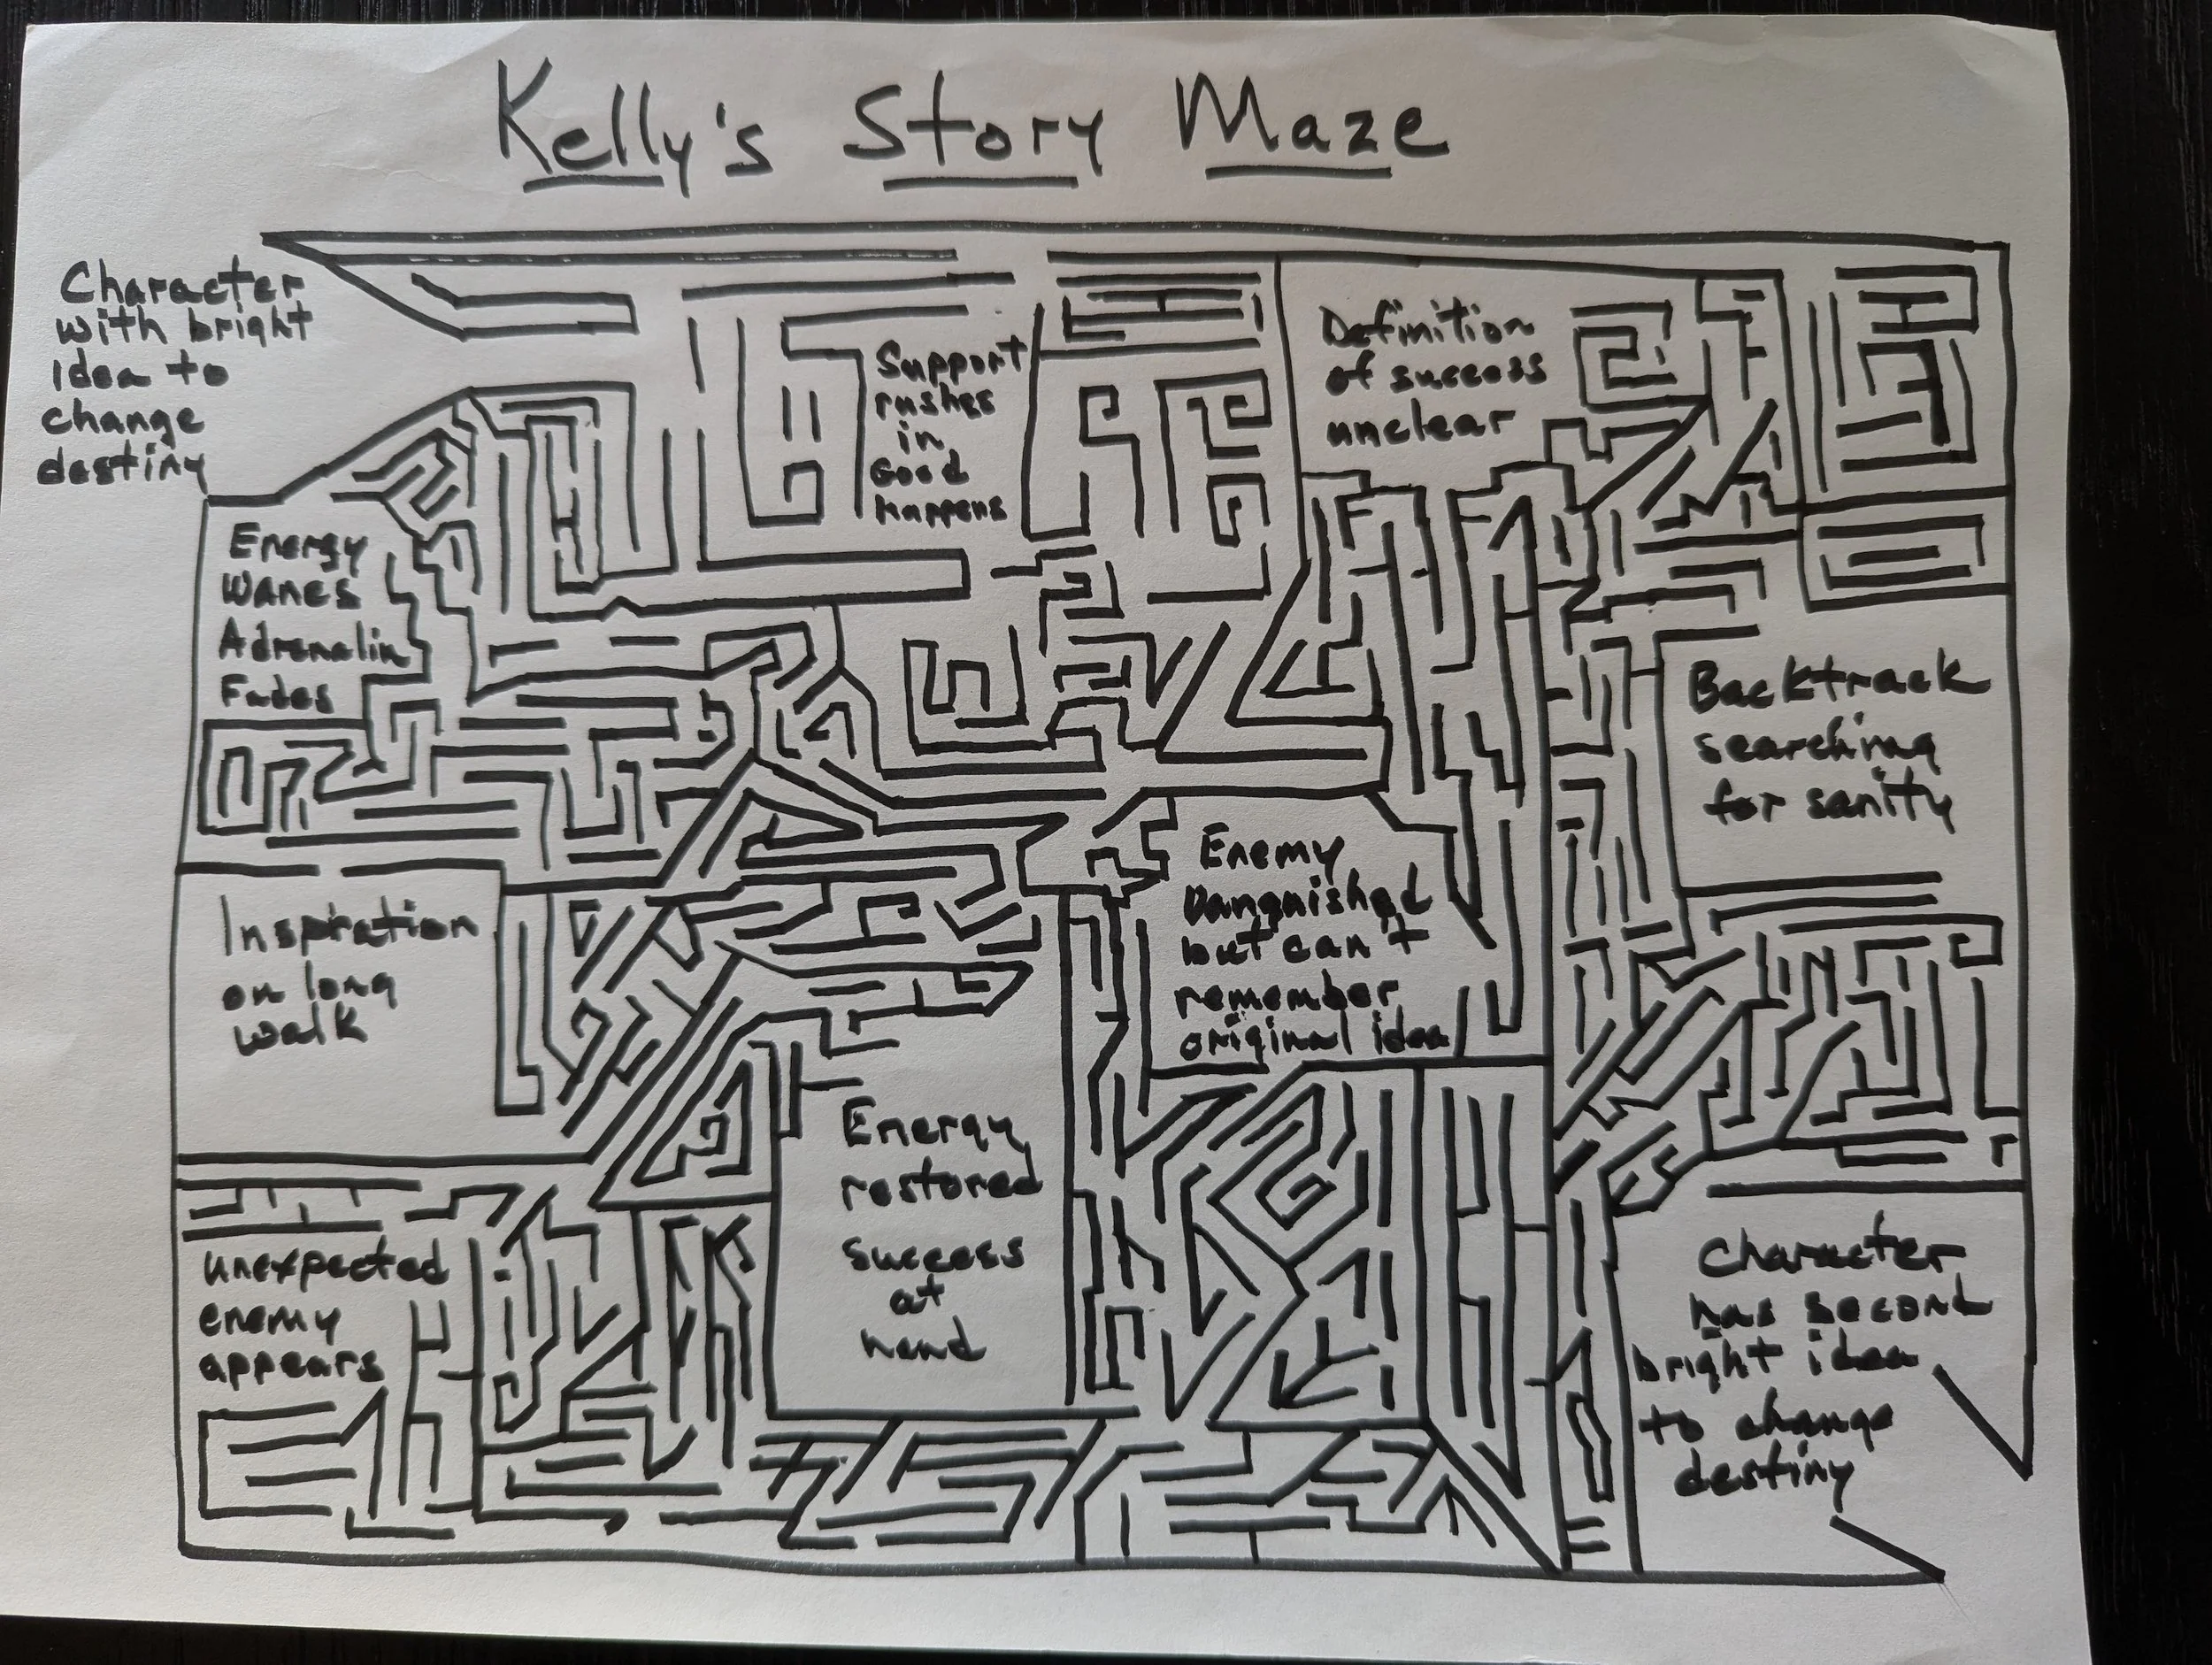 Kelly's Story Maze
Character
with bright
Idea to
change
destiny
Support
rushes
in
Good
happens
Definition
of success
unclear
Energy
Wanes
Adrenalin
Fades
Backtrack
searching
for sanity
Inspiration
on long
walk
Enemy
Vanquished
but can't
remember
original idea
Energy
restored
success
at
hand
unexpected
enemy
appears
Character
has second
bright idea
to change
destiny